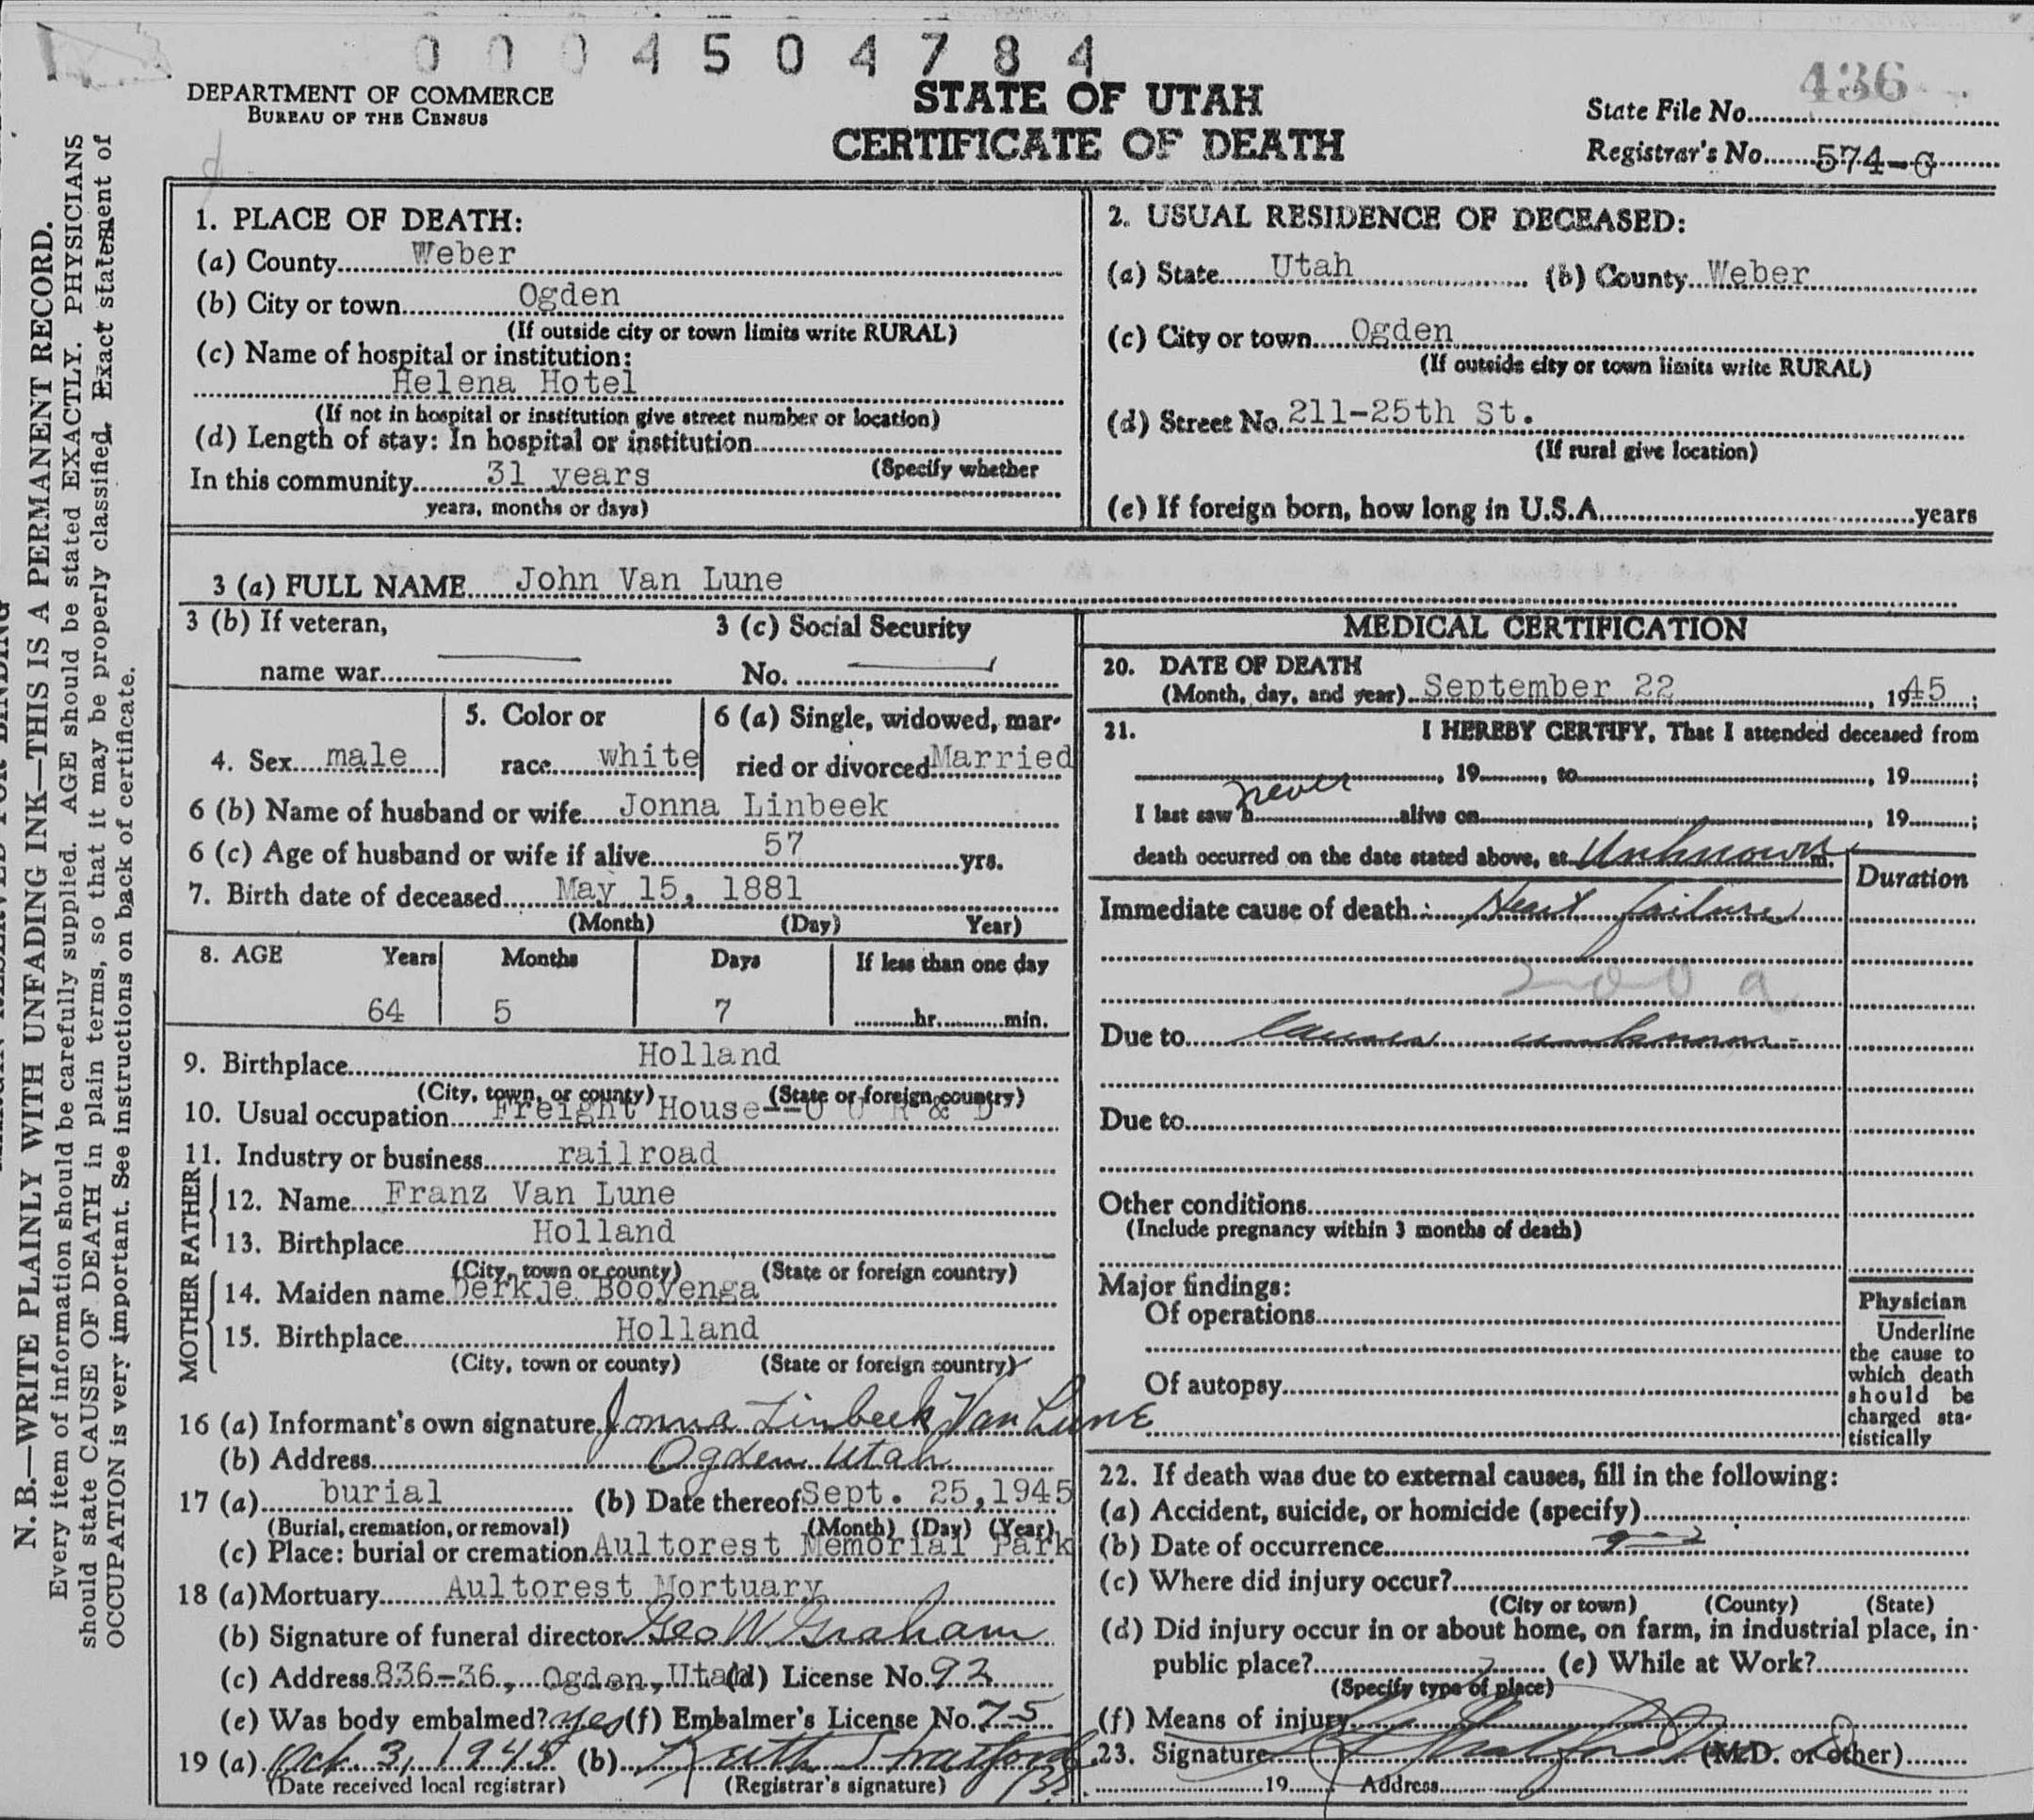 0004504784
DEPARTMENT OF COMMERCE
BUREAU OF THE CENSUS
STATE OF UTAH
CERTIFICATE OF DEATH
State File No. 436
Registrar's No. 574-G
N. B.—WRITE PLAINLY WITH UNFADING INK—THIS IS A PERMANENT RECORD.
Every item of information should be carefully supplied. AGE should be stated EXACTLY. PHYSICIANS
should state CAUSE OF DEATH in plain terms, so that it may be properly classified. Exact statement of
OCCUPATION is very important. See instructions on back of certificate.
1. PLACE OF DEATH:
(a) County Weber
(b) City or town Ogden
(If outside city or town limits write RURAL)
(c) Name of hospital or institution:
Helena Hotel
(If not in hospital or institution give street number or location)
(d) Length of stay: In hospital or institution
(Specify whether
In this community 31 years
years, months or days)
2. USUAL RESIDENCE OF DECEASED:
(a) State Utah (b) County Weber
(c) City or town Ogden
(If outside city or town limits write RURAL)
(d) Street No. 211-25th St.
(If rural give location)
(e) If foreign born, how long in U.S.A. years
3 (a) FULL NAME John Van Lune
3 (b) If veteran,
name war
3 (c) Social Security
No.
4. Sex male
5. Color or
race white
6 (a) Single, widowed, mar-
ried or divorced Married
6 (b) Name of husband or wife Jonna Linbeek
6 (c) Age of husband or wife if alive 57 yrs.
7. Birth date of deceased May 15, 1881
(Month) (Day) Year)
8. AGE Years Months Days If less than one day
64 5 7 hr. min.
9. Birthplace Holland
(City, town, or county) (State or foreign country)
10. Usual occupation Freight House--O U R & D
11. Industry or business railroad
FATHER
12. Name Franz Van Lune
13. Birthplace Holland
(City, town or county) (State or foreign country)
MOTHER
14. Maiden name Derkje Booyenga
15. Birthplace Holland
(City, town or county) (State or foreign country)
16 (a) Informant's own signature Jonna Linbeek Van Lune
(b) Address Ogden Utah
17 (a) burial (b) Date thereof Sept. 25, 1945
(Burial, cremation, or removal) (Month) (Day) (Year)
(c) Place: burial or cremation Aultorest Memorial Park
18 (a) Mortuary Aultorest Mortuary
(b) Signature of funeral director Geo W Graham
(c) Address 836-36, Ogden, Utah (d) License No. 93
(e) Was body embalmed? yes (f) Embalmer's License No. 75
19 (a) Oct. 3, 1945 (b) Ruth Stratford
(Date received local registrar) (Registrar's signature)
MEDICAL CERTIFICATION
20. DATE OF DEATH
(Month, day, and year) September 22, 1945;
21. I HEREBY CERTIFY, That I attended deceased from
, 19 , to , 19 ;
I last saw h never alive on , 19 ;
death occurred on the date stated above, at Unknown m.
Duration
Immediate cause of death: Heart failure
200 a
Due to causes unknown-
Due to
Other conditions
(Include pregnancy within 3 months of death)
Major findings:
Of operations
Of autopsy
Physician
Underline
the cause to
which death
should be
charged sta-
tistically
22. If death was due to external causes, fill in the following:
(a) Accident, suicide, or homicide (specify)
(b) Date of occurrence
(c) Where did injury occur?
(City or town) (County) (State)
(d) Did injury occur in or about home, on farm, in industrial place, in
public place? (e) While at Work?
(Specify type of place)
(f) Means of injury
23. Signature (M.D. or other)
19 Address